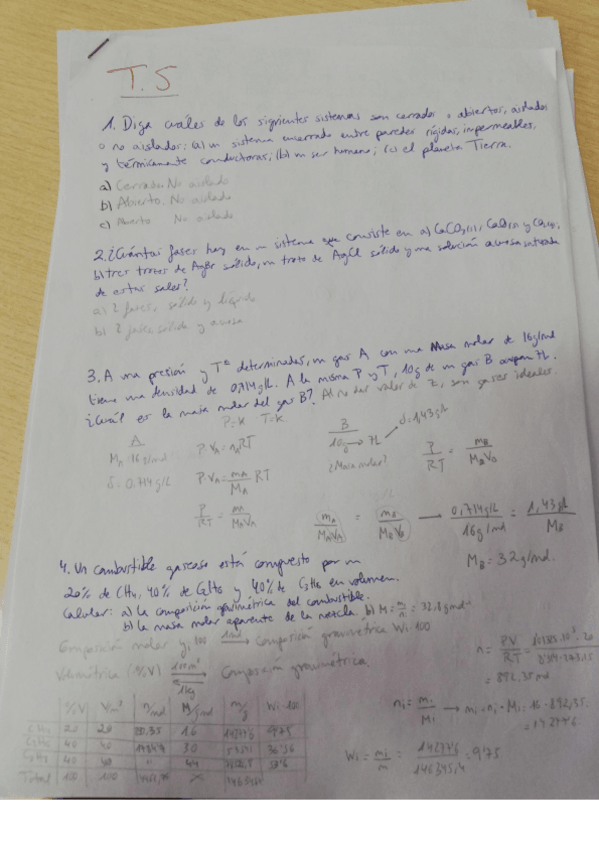 T.5
1. Diga cuáles de los siguientes sistemas son cerrados o abiertos, aislados
o no aislados: (a) un sistema encerrado entre paredes rígidas, impermeables,
y térmicamente conductoras; (b) un ser humano; (c) el planeta Tierra.
a) Cerrado. No aislado
b) Abierto. No aislado
c) Abierto No aislado
2. ¿Cuántas fases hay en un sistema que consiste en a) CaCO3(s), CaO(s) y CO2(g),
b) tres trozos de AgBr sólido, un trozo de AgCl sólido y una solución acuosa saturada
de estas sales?
a) 2 fases, sólido y líquido
b) 2 fases sólida y acuosa
3. A una presión y Tª determinadas, un gas A con una Masa molar de 16g/mol
tiene una densidad de 0,714g/L. A la misma P y T, 10g de un gas B ocupan 7L.
¿Cuál es la masa molar del gas B? Al no dar valor de Z, son gases ideales.
P=k T=k
A
MA = 16g/mol
δ = 0.714 g/L
P·VA = nA RT
P·VA = mA/MA RT
P/RT = mA/MAVA
B
10g → 7L → δ=1,43g/L
¿Masa molar?
P/RT = mB/MBVB
mA/MAVA = mB/MBVB → 0,714g/L / 16g/mol = 1,43g/L / MB
MB = 32g/mol.
4. Un combustible gaseoso está compuesto por un
20% de CH4, 40% de C2H6 y 40% de C3H8 en volumen.
Calcular: a) la composición gravimétrica del combustible.
b) la masa molar aparente de la mezcla. b) M = m/n = 32,8 g/mol
Composición molar yi·100 → 1mol composición gravimétrica Wi·100
Volumétrica (%V) 100m³ → Composición gravimétrica
1kg
n = PV/RT
= 892,35 mol
ni = mi/Mi → mi = ni·Mi = 16·892,35
= 14277'6
%V V/m³ n/mol M/g/mol m/g Wi·100
CH4 20 20 16 14277'6 9'75
C2H6 40 40 30 36'56
C3H8 40 40 " 44
Total 100 100
Wi = mi/m = 14277'6/146345,4 = 9'75